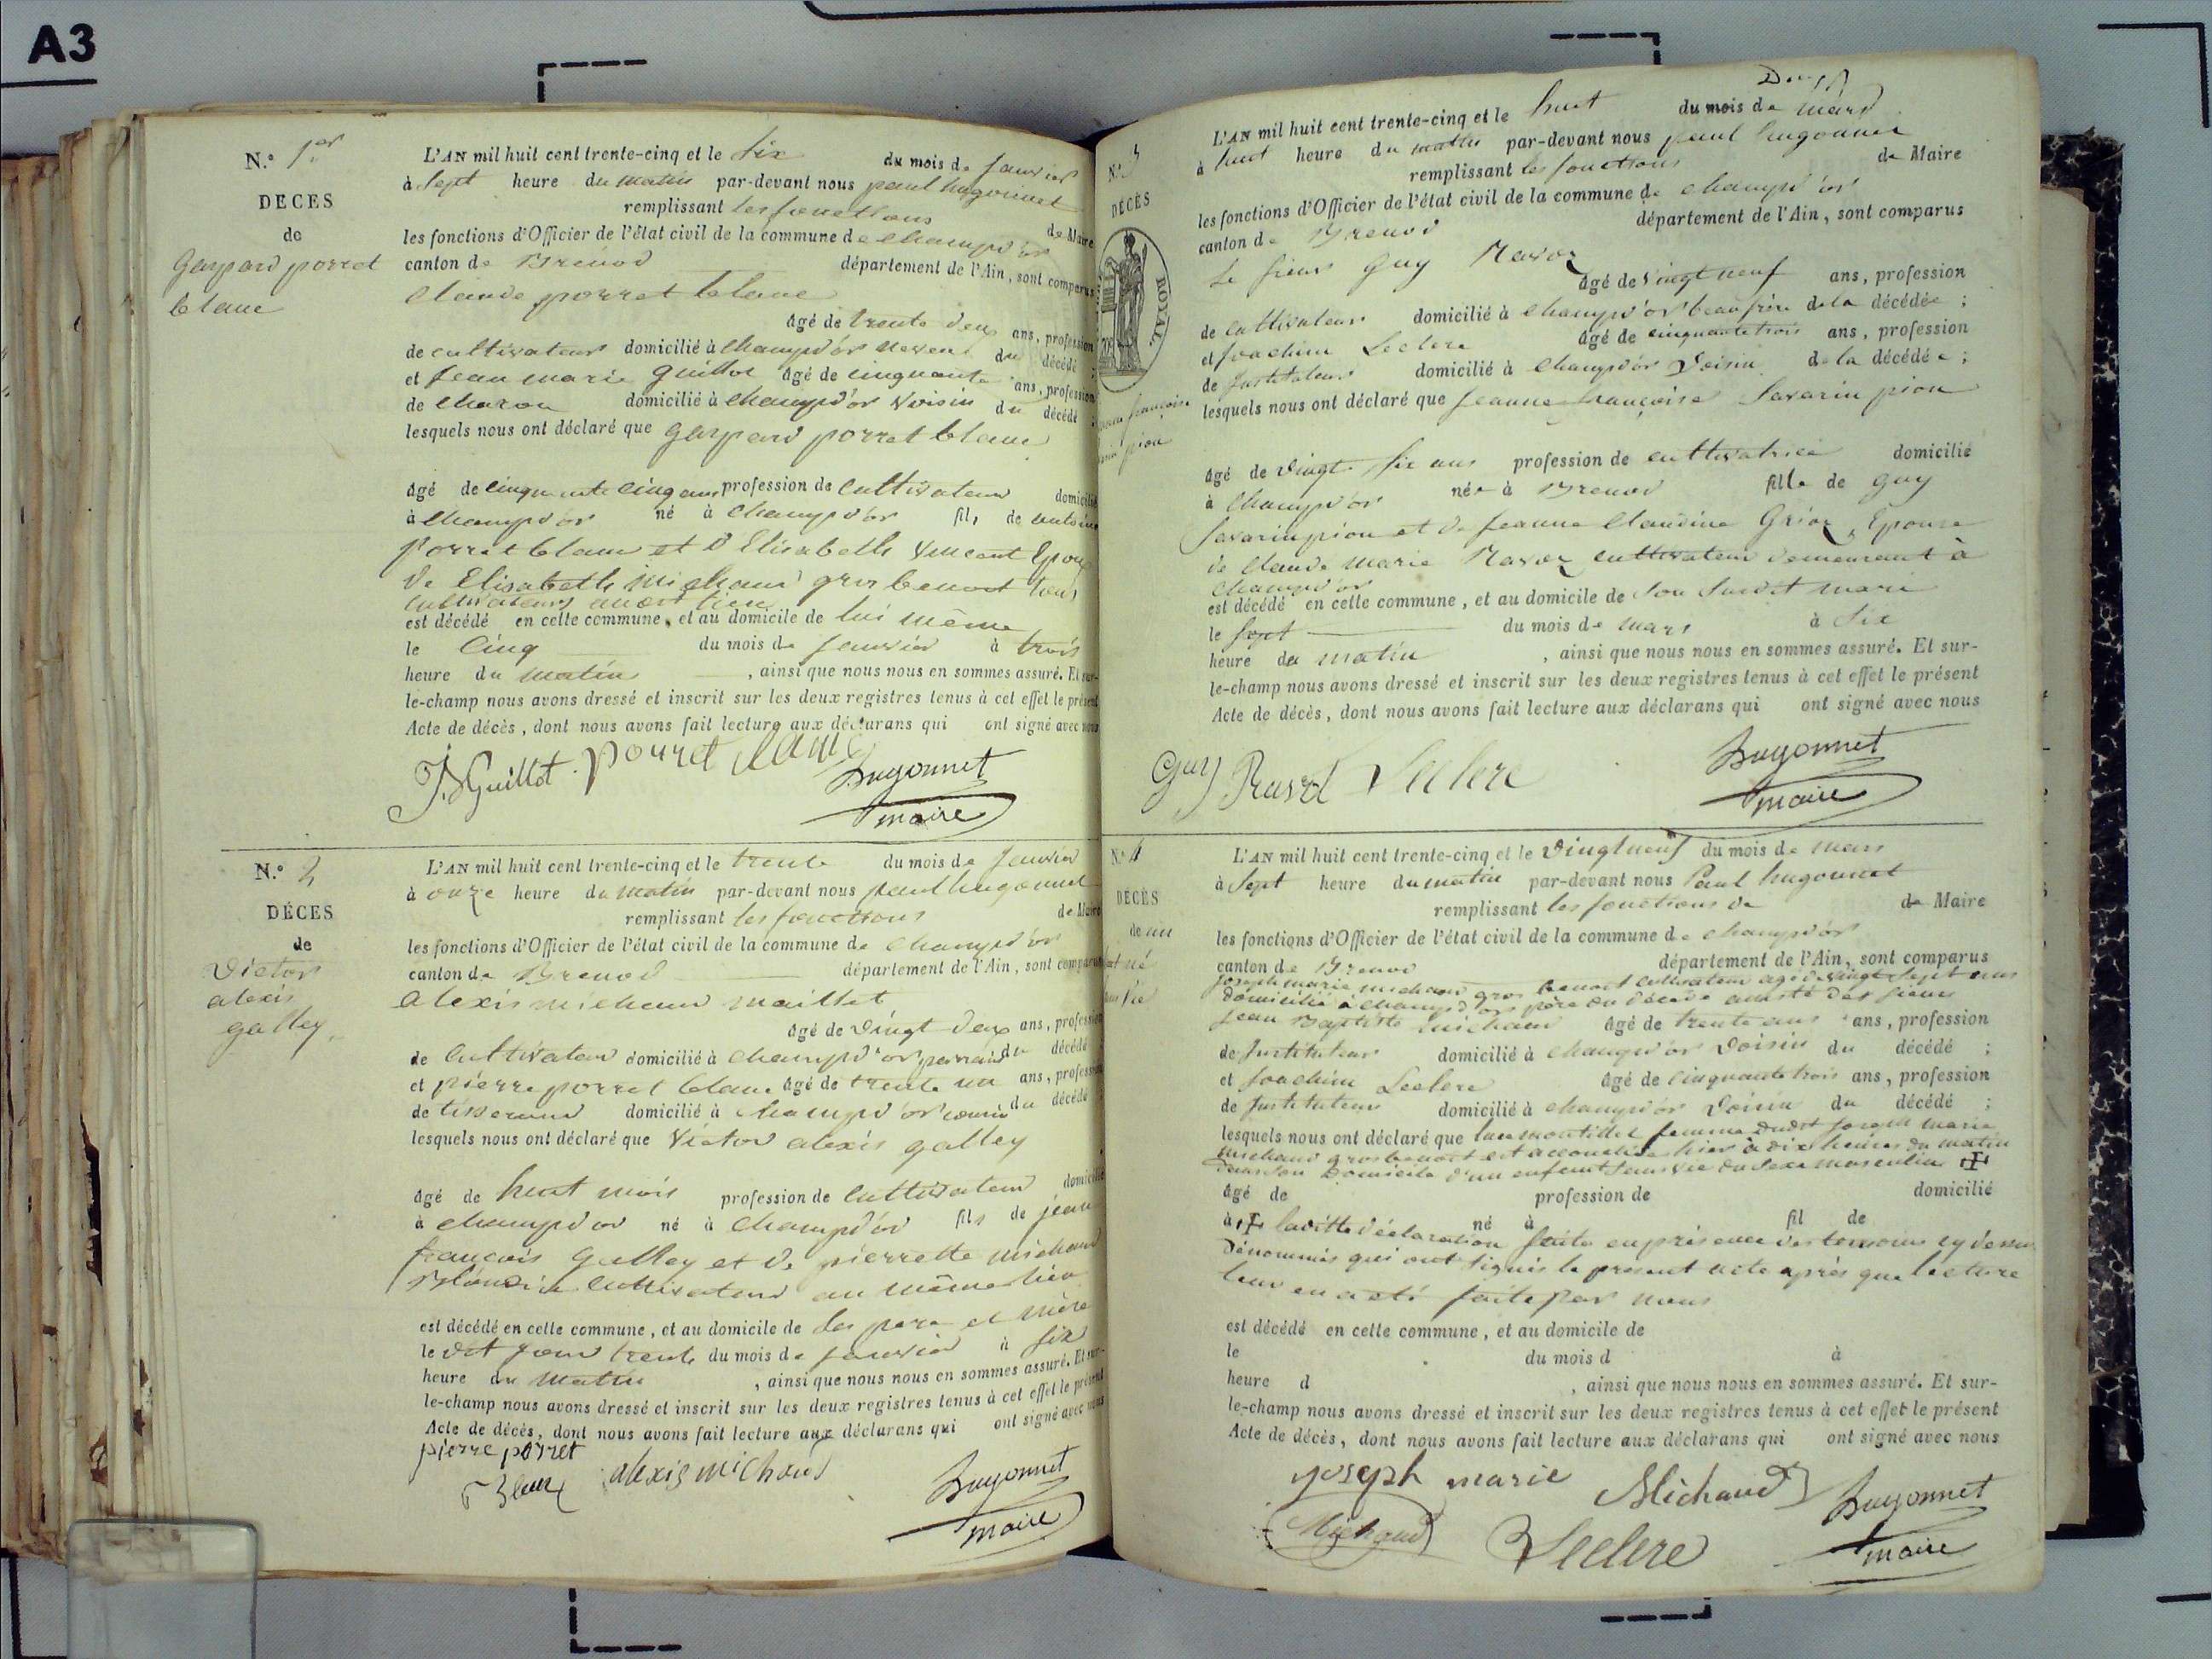 A3
N.° 1er
DECES
de
Gaspard porret
blanc
L'AN mil huit cent trente-cinq et le six du mois de janvier
à sept heure du matin par-devant nous paul hugonnet
remplissant les fonctions de Maire
les fonctions d'Officier de l'état civil de la commune de champd'or
canton de Brenod département de l'Ain, sont comparus
Claude porret blanc
âgé de trente deux ans, profession
de cultivateur domicilié à Champd'or neveu du décédé ;
et jean marie Guillot âgé de cinquante ans, profession
de charon domicilié à champd'or voisin du décédé ;
lesquels nous ont déclaré que gaspard porret blanc
âgé de cinquante cinq ans profession de cultivateur domicilié
à champd'or né à champd'or fils de antoine
porret blanc et d'Elisabeth vincent Epoux
de Elisabeth michaud gros benoit tous
cultivateurs au dit lieu
est décédé en cette commune, et au domicile de lui même
le cinq du mois de janvier à trois
heure du matin , ainsi que nous nous en sommes assuré. Et sur-
le-champ nous avons dressé et inscrit sur les deux registres tenus à cet effet le présent
Acte de décès, dont nous avons fait lecture aux déclarans qui ont signé avec nous
J. Guillot porret blanc
hugonnet
maire
N.° 2
DÉCES
de
Victor
alexis
galley
L'AN mil huit cent trente-cinq et le trente du mois de janvier
à onze heure du matin par-devant nous paul hugonnet
remplissant les fonctions de Maire
les fonctions d'Officier de l'état civil de la commune de champd'or
canton de Brenod département de l'Ain, sont comparus
alexis michaud maillet
âgé de vingt deux ans, profession
de cultivateur domicilié à champd'or parrain du décédé
et pierre porret blanc âgé de trente un ans, profession
de tisserand domicilié à champd'or cousin du décédé
lesquels nous ont déclaré que Victor alexis galley
âgé de huit mois profession de cultivateur domicilié
à champd'or né à champd'or fils de jean
françois Galley et de pierrette michaud
cultivateurs au même lieu
est décédé en cette commune, et au domicile de ses pere et mère
le dit jour trente du mois de janvier à six
heure du matin , ainsi que nous nous en sommes assuré. Et sur-
le-champ nous avons dressé et inscrit sur les deux registres tenus à cet effet le présent
Acte de décès, dont nous avons fait lecture aux déclarans qui ont signé avec nous
pierre porret
alexis michaud
hugonnet
maire
N.° 3
DÉCÈS
ROYAL.
françoise
pion
L'AN mil huit cent trente-cinq et le huit du mois de mars
à huit heure du matin par-devant nous paul hugonnet
remplissant les fonctions de Maire
les fonctions d'Officier de l'état civil de la commune de champd'or
canton de Brenod département de l'Ain, sont comparus
Le sieur Guy Ravoz
âgé de vingt neuf ans, profession
de cultivateur domicilié à champd'or beau frère de la décédée ;
et joachim Leclere âgé de cinquante trois ans, profession
de Instituteur domicilié à champd'or Voisin de la décédée ;
lesquels nous ont déclaré que jeanne françoise Savarin pion
âgé de vingt six ans profession de cultivatrice domicilié
à champd'or née à Brenod fille de Guy
Savarin pion et de jeanne Claudine Grioz, Epouse
de Claude marie Ravoz cultivateur demeurant à
champd'or
est décédé en cette commune, et au domicile de son susdit mari
le sept du mois de mars à six
heure du matin , ainsi que nous nous en sommes assuré. Et sur-
le-champ nous avons dressé et inscrit sur les deux registres tenus à cet effet le présent
Acte de décès, dont nous avons fait lecture aux déclarans qui ont signé avec nous
Guy Leclere
hugonnet
maire
N.° 4
DÉCÈS
de un
né
sans vie
L'AN mil huit cent trente-cinq et le vingt neuf du mois de mars
à sept heure du matin par-devant nous Paul hugonnet
remplissant les fonctions de de Maire
les fonctions d'Officier de l'état civil de la commune de champd'or
canton de Brenod département de l'Ain, sont comparus
joseph marie michaud gros benoit cultivateur agé de vingt sept ans
domicilié à champd'or père du décédé assisté des sieurs
jean Baptiste michaud âgé de trente ans ans, profession
de Instituteur domicilié à champd'or voisin du décédé ;
et joachim Leclere âgé de cinquante trois ans, profession
de Instituteur domicilié à champd'or voisin du décédé ;
lesquels nous ont déclaré que montillet femme dudit joseph marie
michaud gros benoit est accouchée hier à dix heures du matin
dans son domicile d'un enfant sans vie du sexe masculin
âgé de profession de domicilié
à la dite déclaration né à fil de
faite en présence des temoins cy dessus
dénommés qui ont signés le présent acte après que lecture
leur en a été faite par nous
est décédé en cette commune, et au domicile de
le du mois d à
heure d , ainsi que nous nous en sommes assuré. Et sur-
le-champ nous avons dressé et inscrit sur les deux registres tenus à cet effet le présent
Acte de décès, dont nous avons fait lecture aux déclarans qui ont signé avec nous
joseph marie Michaud
Michaud Leclere
hugonnet
maire